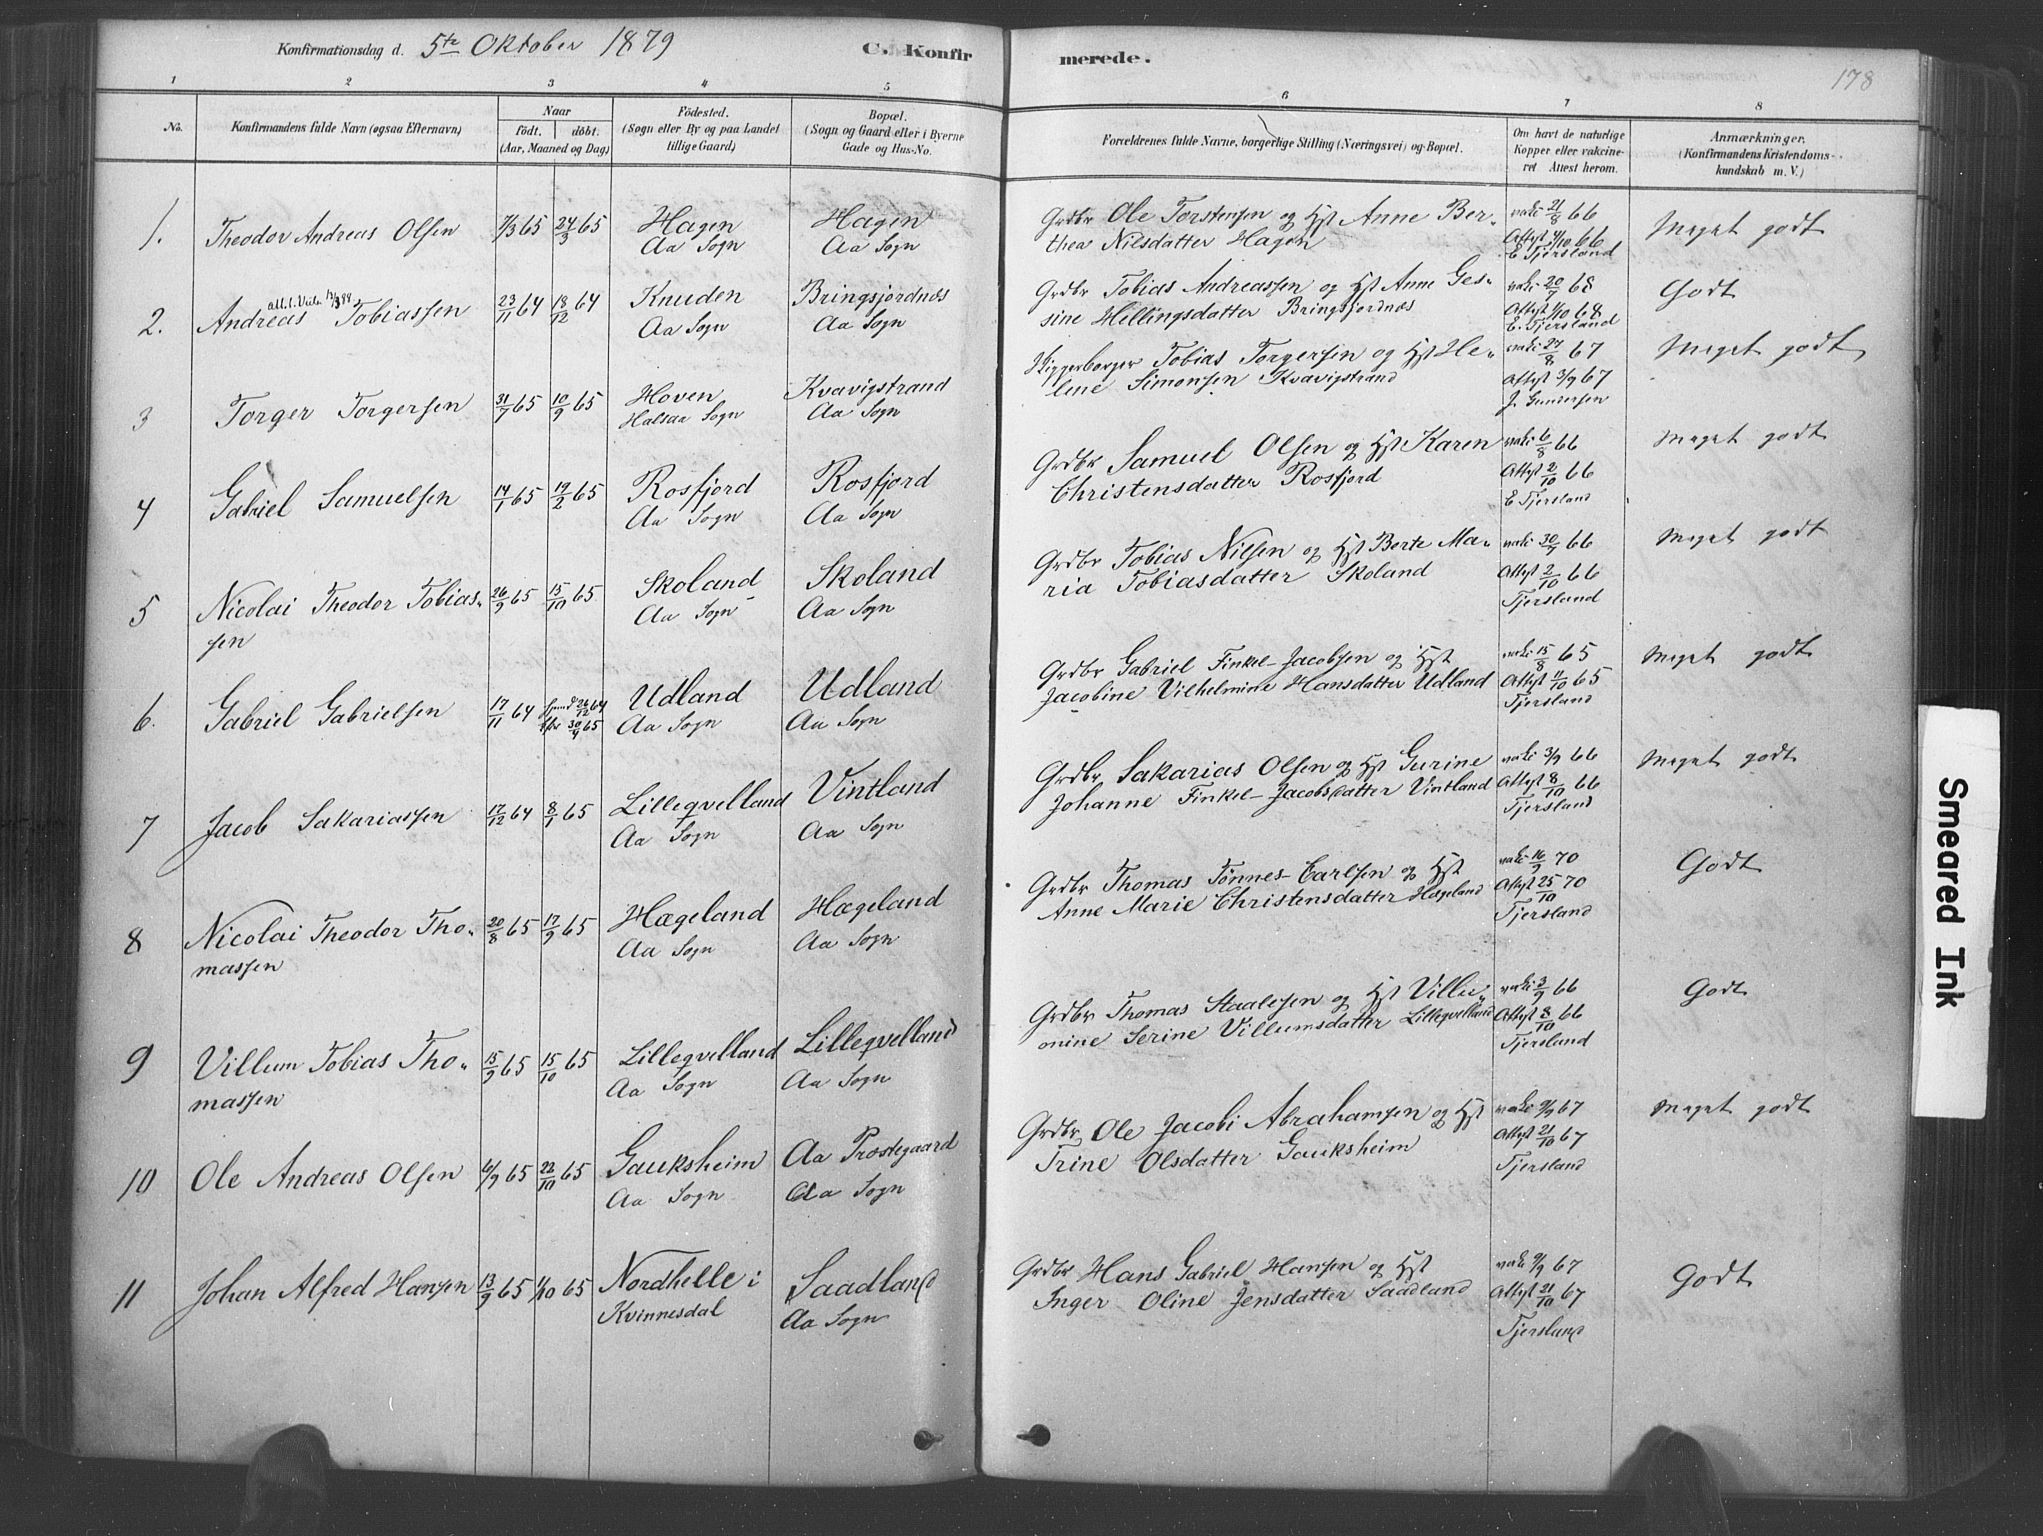 Konfirmationsdag d. 5te Oktober 1879
C. Konfirmerede.
178
1 2 3 4 5 6 7 8
No.
Konfirmandens fulde Navn (ogsaa Efternavn)
Naar
födt. döbt.
(Aar, Maaned og Dag)
Födested.
(Sogn eller By og paa Landet
tillige Gaard)
Bopæl.
(Sogn og Gaard eller i Byerne
Gade og Hus-No.
Forældrenes fulde Navne, borgerlige Stilling (Næringsvei) og Bopæl.
Om havt de naturlige
Kopper eller vakcine-
ret Attest herom.
Anmærkninger.
(Konfirmandens Kristendoms-
kundskab m. V.)
1. Theodor Andreas Olsen 7/3 65 24/3 65 Hagen Hagen
Aa Sogn Aa Sogn
Grdbr Ole Torstensen og Hst Anne Ber-
thea Nilsdatter Hagen
vakc 21/8 66
Attest 4/10 66
E Tjersland
Meget godt
2. Andreas Tobiassen 23/11 64 18/12 64 Knuden Bringsjordnæs
Aa Sogn Aa Sogn
Grdbr Tobias Andreassen og Hst Anne Ges-
sine Hellingsdatter Bringsjordnæs
vakc 20/9 68
Attest 1/10 68
E. Tjersland
Godt
3 Torger Torgersen 31/7 65 10/9 65 Hoven Kvavigstrand
Halsaa Sogn Aa Sogn
Tobias Torgersen og Hst He-
lene Simonsen Kvavigstrand
vakc 27/8 67
Attest 3/9 67
J. Gundersen
Meget godt
4 Gabriel Samuelsen 14/1 65 19/2 65 Rosfjord Rosfjord
Aa Sogn Aa Sogn
Grdbr Samuel Olsen og Hst Karen
Christensdatter Rosfjord
vakc 6/8 66
Attest 2/10 66
E Tjersland
Meget godt
5 Nicolai Theodor Tobias-
sen
26/9 65 15/10 65 Skoland Skoland
Aa Sogn Aa Sogn
Grdbr Tobias Nilsen og Hst Berte Ma-
ria Tobiasdatter Skoland
vakc 30/9 66
Attest 2/10 66
Tjersland
Meget godt
6. Gabriel Gabrielsen 17/11 64 26/12 64 Udland Udland
30/4 65 Aa Sogn Aa Sogn
Grdbr Gabriel Finkel-Jacobsen og Hst
Jacobine Vilhelmine Hansdatter Udland
vakc 15/8 65
Attest 11/10 65
Tjersland
Meget godt
7 Jacob Sakariassen 17/12 64 8/1 65 Lilleqvelland Vintland
Aa Sogn Aa Sogn
Grdbr Sakarias Olsen og Hst Gurine
Johanne Finkel-Jacobsdatter Vintland
vakc 3/9 66
Attest 8/10 66
Tjersland
Meget godt
8 Nicolai Theodor Tho-
massen
20/8 65 17/9 65 Hægeland Hægeland
Aa Sogn Aa Sogn
Grdbr Thomas Tönnes Carlsen og Hst
Anne Marie Christensdatter Hægeland
vakc 16/9 70
Attest 25/10 70
Tjersland
Godt
9 Villum Tobias Tho-
massen
15/9 65 15/10 65 Lilleqvelland Lilleqvelland
Aa Sogn Aa Sogn
Grdbr Thomas Staalesen og Hst Villu-
mine Serine Villumsdatter Lilleqvelland
vakc 3/9 66
Attest 8/10 66
Tjersland
Godt
10 Ole Andreas Olsen 6/9 65 22/10 65 Gauksheim Aa Prostegaard
Aa Sogn Aa Sogn
Grdbr Ole Jacobi Abrahamsen og Hst
Trine Olsdatter Gauksheim
vakc 9/9 67
Attest 21/10 67
Tjersland
Meget godt
11 Johan Alfred Hansen 13/9 65 1/10 65 Nordhelle i Saadland
Kvinnesdal Aa Sogn
Grdbr Hans Gabriel Hansen og Hst
Inger Oline Jensdatter Saadland
vakc 9/9 67
Attest 21/10 67
Tjersland
Godt
Smeared Ink